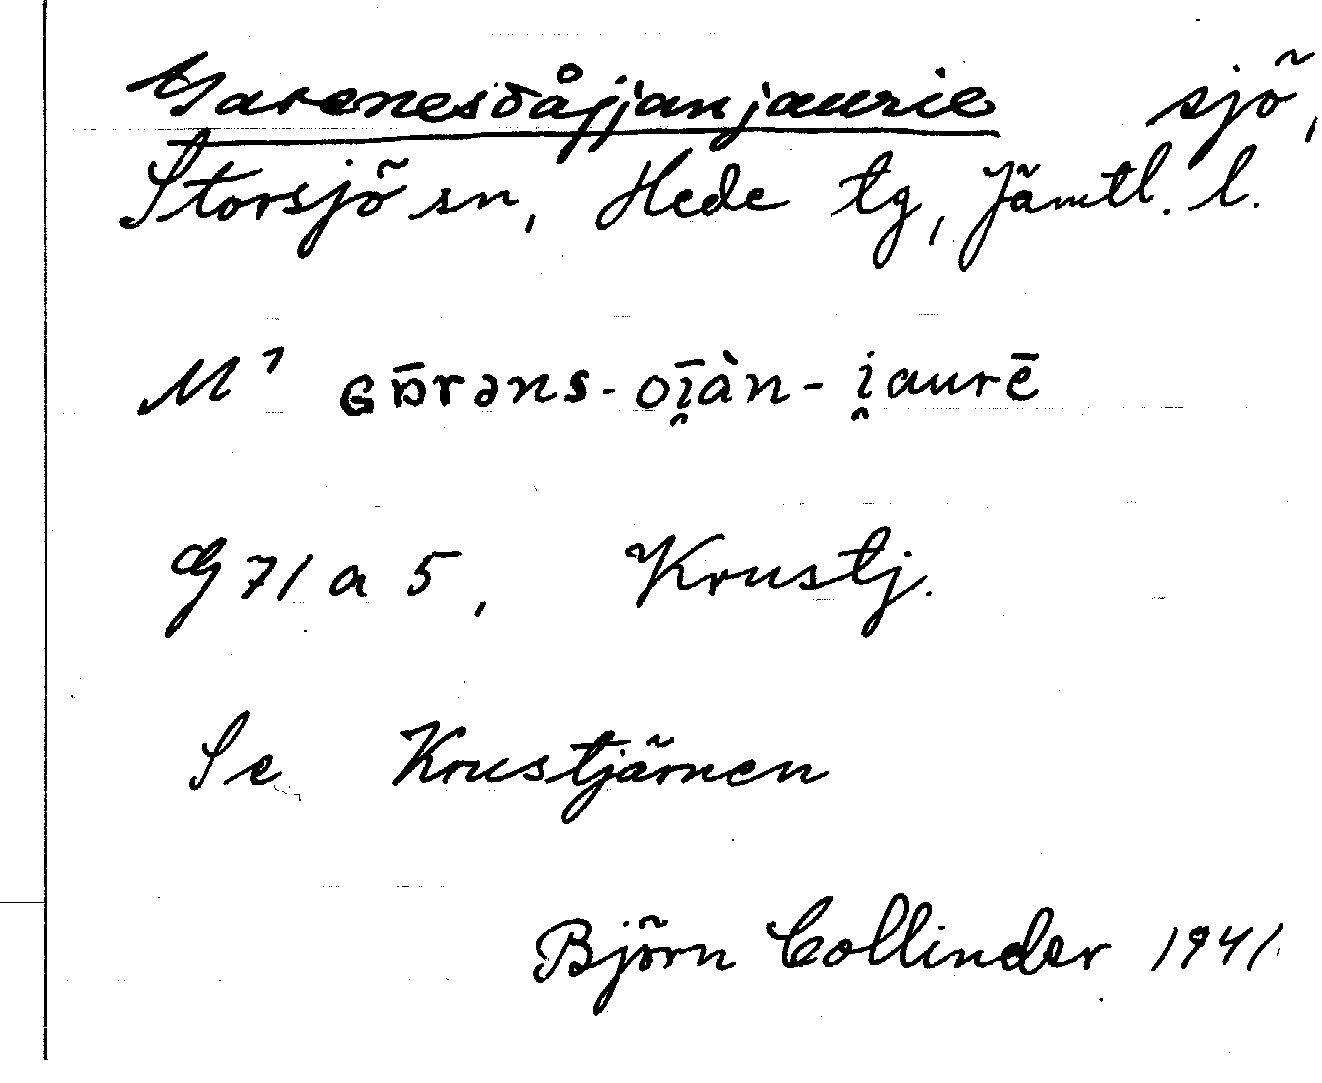 Garenesoåjjanjaurie sjö,
Storsjö sn, Hede tg, Jämtl. l.
M⁷ ɢɒ̄rəns-oī̯àn-i̯aurē
G 71 a 5, Krustj.
Se Krustjärnen
Björn Collinder 1941